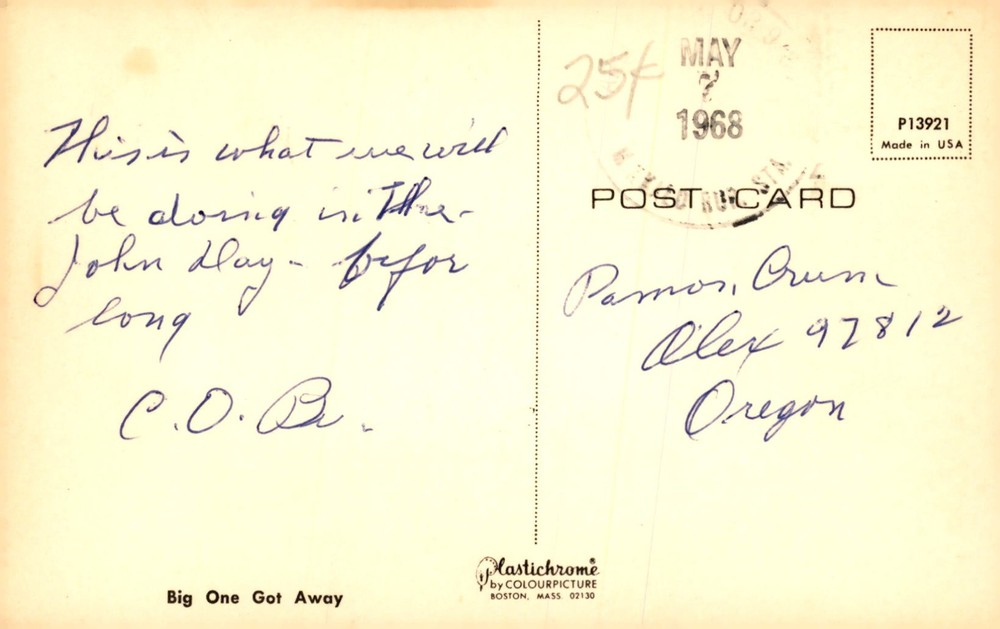 This is what we will
be doing in the
John Day - befor
long
C. O. B.
Big One Got Away
Plastichrome®
by COLOURPICTURE
BOSTON, MASS. 02130
25¢
MAY
7
1968
RUR. STA.
P13921
Made in USA
POST CARD
Ramon Crum
Olex 97812
Oregon